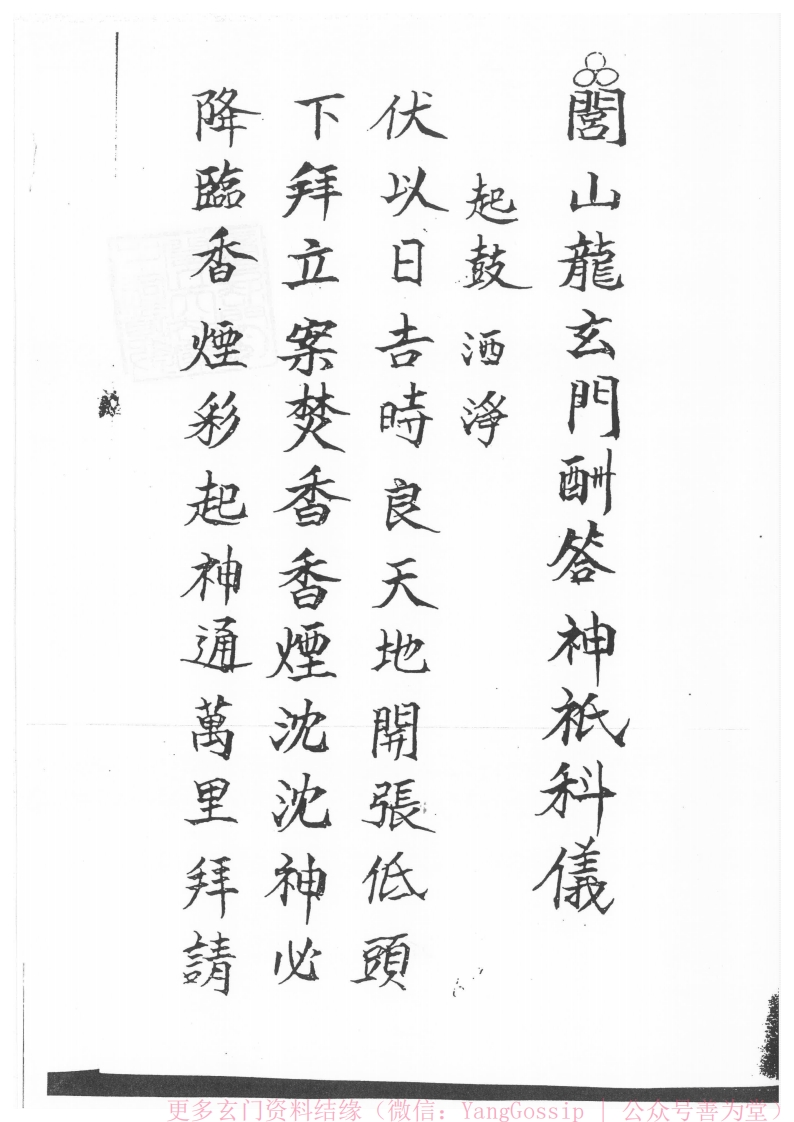 閭山龍玄門酬答神祇科儀
起鼓洒淨
伏以日吉時良天地開張低頭
下拜立案焚香香煙沈沈神必
降臨香煙彩起神通萬里拜請
更多玄门资料结缘（微信：YangGossip | 公众号善为堂）